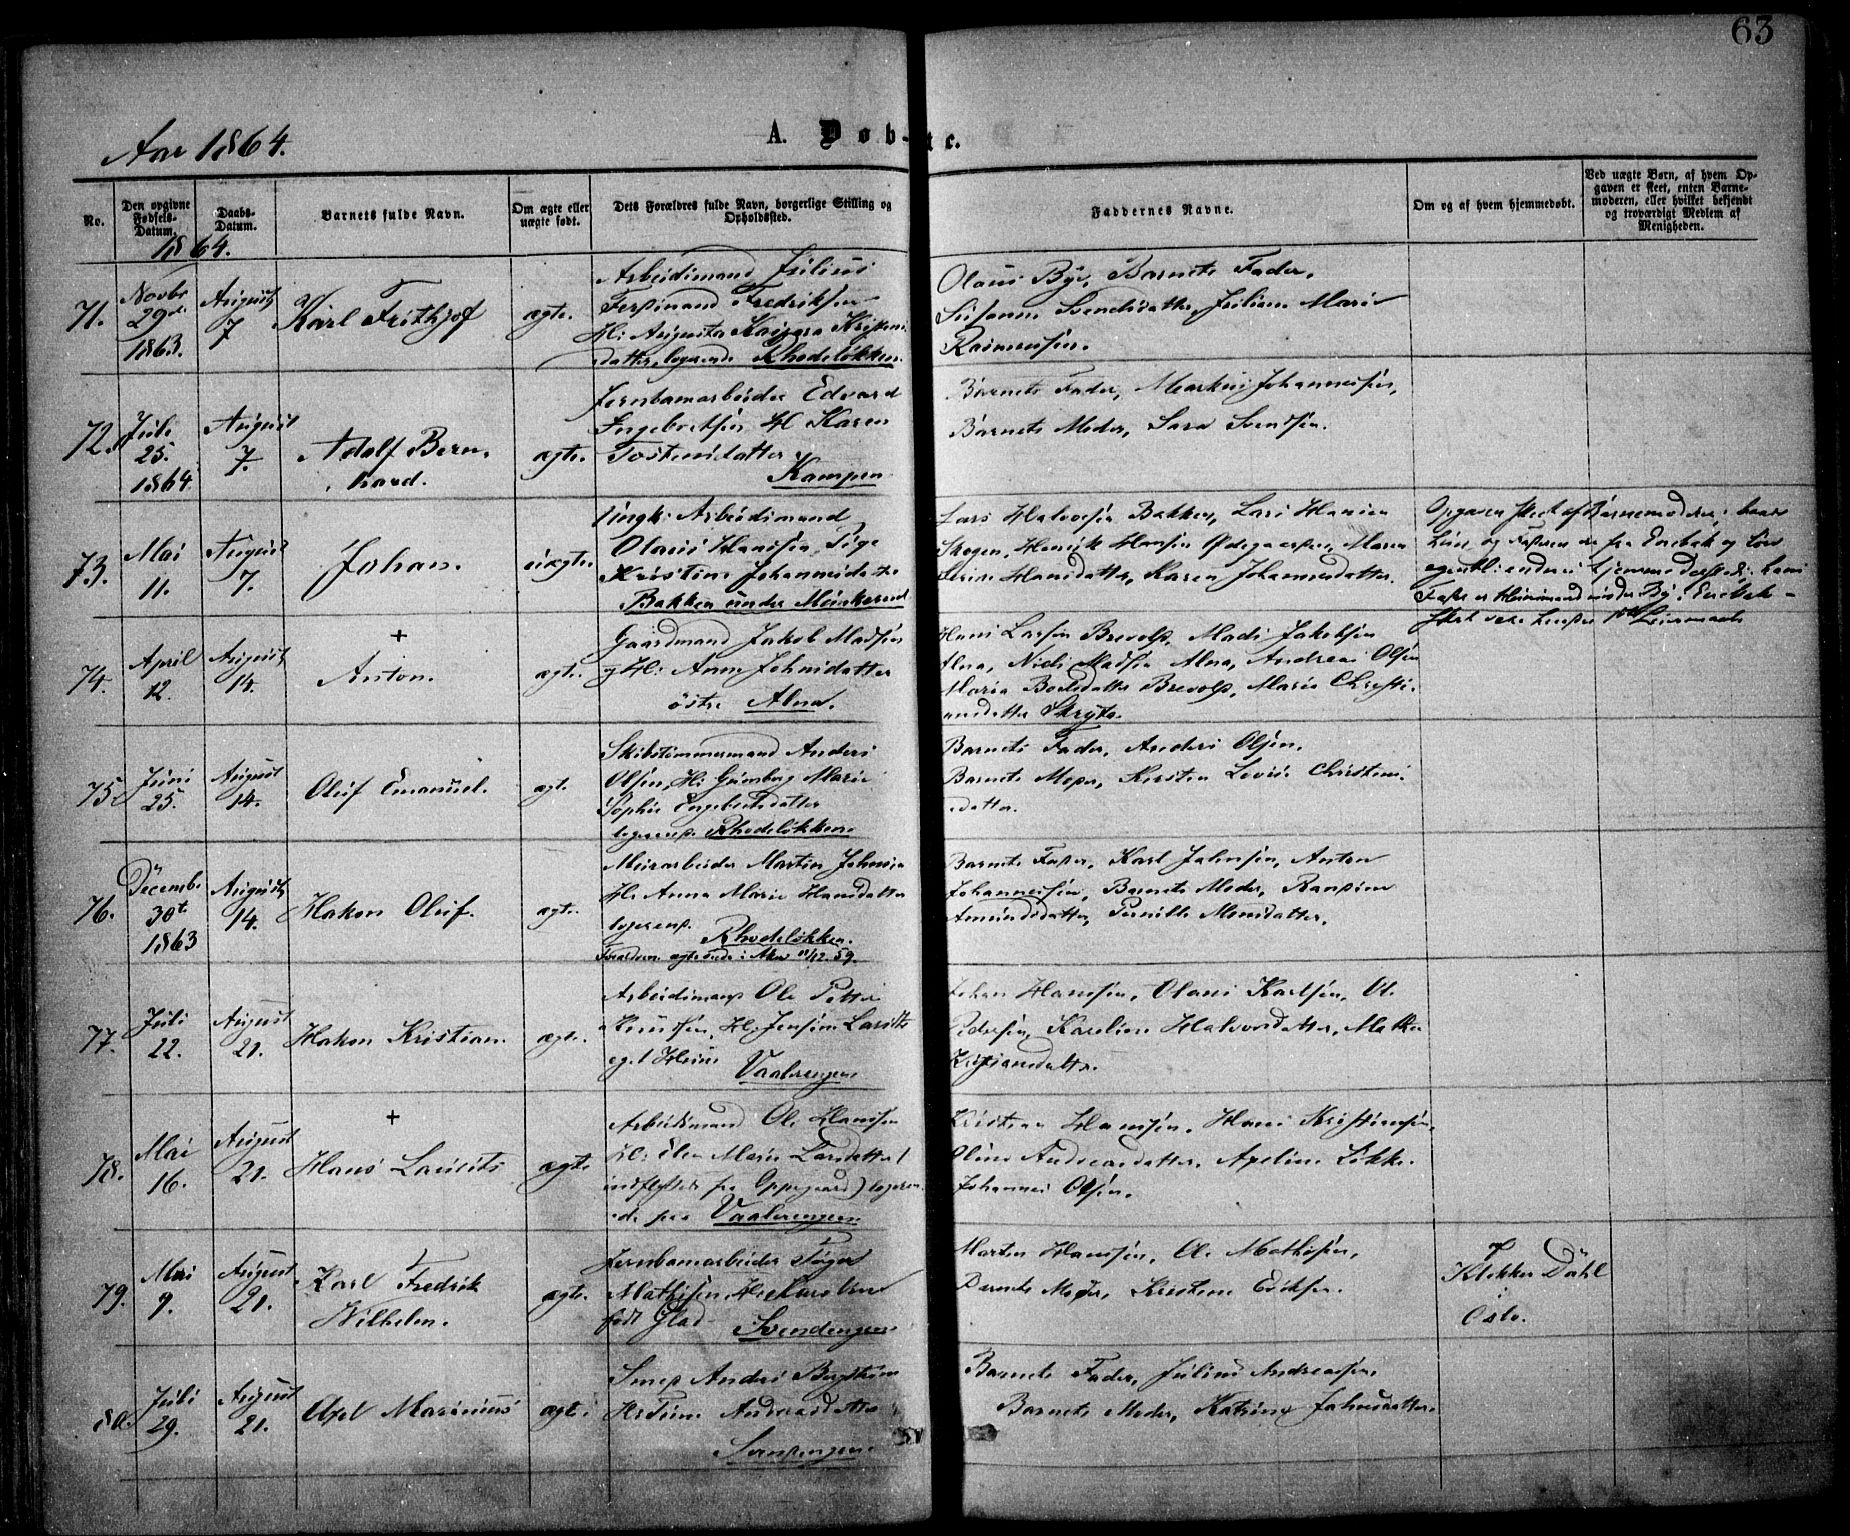 63
Aar 1864.
A. Døb- te.
No.
Den opgivne Fødsels-Datum.
Daabs-Datum.
Barnets fulde Navn.
Om ægte eller uægte født.
Dets Forældres fulde Navn, borgerlige Stilling og Opholdssted.
Faddernes Navne.
Om og af hvem hjemmedøbt.
Ved uægte Børn, af hvem Opgaven er skeet, enten Barnemoderen, eller hvilket bekjendt og troværdigt Medlem af Menigheden.
1864.
71.
Novbr 29de 1863.
August 7
Karl Frithjof
ægte.
Arbeidsmand Julius
Ferdinand Fredriksen
H: Augusta Kristens
datter, logerende Rhodeløkken.
Olaus Bye, Barnets Fader,
Susanne Svendsdatter, Juliane Marie
Rasmussen.
72.
Juli 25. 1864
August 7.
Adolf Bern-
hard.
ægte.
Jernbanearbeider Edvard
Ingebretsen H Karen
Tostensdatter
Kampen
Barnets Fader, Markus Johannessen,
Barnets Moder, Sara Svendsen.
73.
Mai 11.
August 7.
Johan.
uægte.
Ungk: Arbeidsmand
Olaus Hansen, Pige
Kristine Johannesdatter
Bakken under Munkerud
Lars Halvorsen Bakken, Lars Hansen
Skogen, Henrik Hansen Ødegaarden, Maren
Hansdatter, Karen Johannesdatter.
Opgaven skeet af Barnemoderen; baade
74.
April 12.
August 14.
+
Anton.
ægte.
Gaardmand Jakob Madsen
og H: Anne Johnsdatter
østre Alna.
Hans Larsen Brevold, Mads Jakobsen
Alna, Niels Madsen Alna, Andreas Olsen
Maria Brevold, Marie Christi-
ansdatter
75
Juni 25.
August 14.
Oluf Emanuel.
ægte
Skibstømmermand Anders
Olsen, H: Gunborg Marie
Sophie Engebretsdatter
logerend. Rhodeløkken.
Barnets Fader, Anders Olsen.
Barnets Moder, Kirsten Lovise Christens-
datter.
76.
Decembr 30t 1863
August 14.
Hakon Oluf.
ægte.
Murarbeider Martin Johnsen
H: Anna Marie Hansdatter
logerend.
Rhodeløkken.
Barnets Fader, Karl Johnsen, Anton
Johannessen, Barnets Moder,
Amundsdatter, Pernille Monsdatter.
77.
Juli 22.
August 21.
Hakon Kristian.
ægte.
Arbeidsmand Ole Petter
Knudsen, H: Larsdtr
eget Huus
Vaalerengen
Johan Hansen, Olaus Karlsen, Ole
Pedersen, Karoline Halvorsdatter, Mathea
Kristiansdatter.
78.
Mai 16.
August 21.
+
Hans Laurits
ægte
Arbeidsmand Ole Hansen
H: Elen Marie Larsdatter (
indflyttet fra Oppegaard) logeren-
de paa Vaalerengen
Kristian Hansen, Hans Kristiansen,
Oline Andreasdatter, Løkke.
Johannes Olsen.
79.
Mai 9.
August 21.
Karl Fredrik
Wilhelm.
ægte.
Jernbanearbeider
Mathisen, H: Karoline
født Glad
Svendengen
Martin Hansen, Ole Mathisen,
Barnets Moder, Kristine Eriksen.
Klokker Dahl
i
Oslo.
80.
Juli 29.
August 21.
Axel Marinius
ægte
Smed Anders Bergstrøm
Andreasdatter
Svendengen.
Barnets Fader, Julius Andreassen,
Barnets Moder, Katrine Johnsdatter.